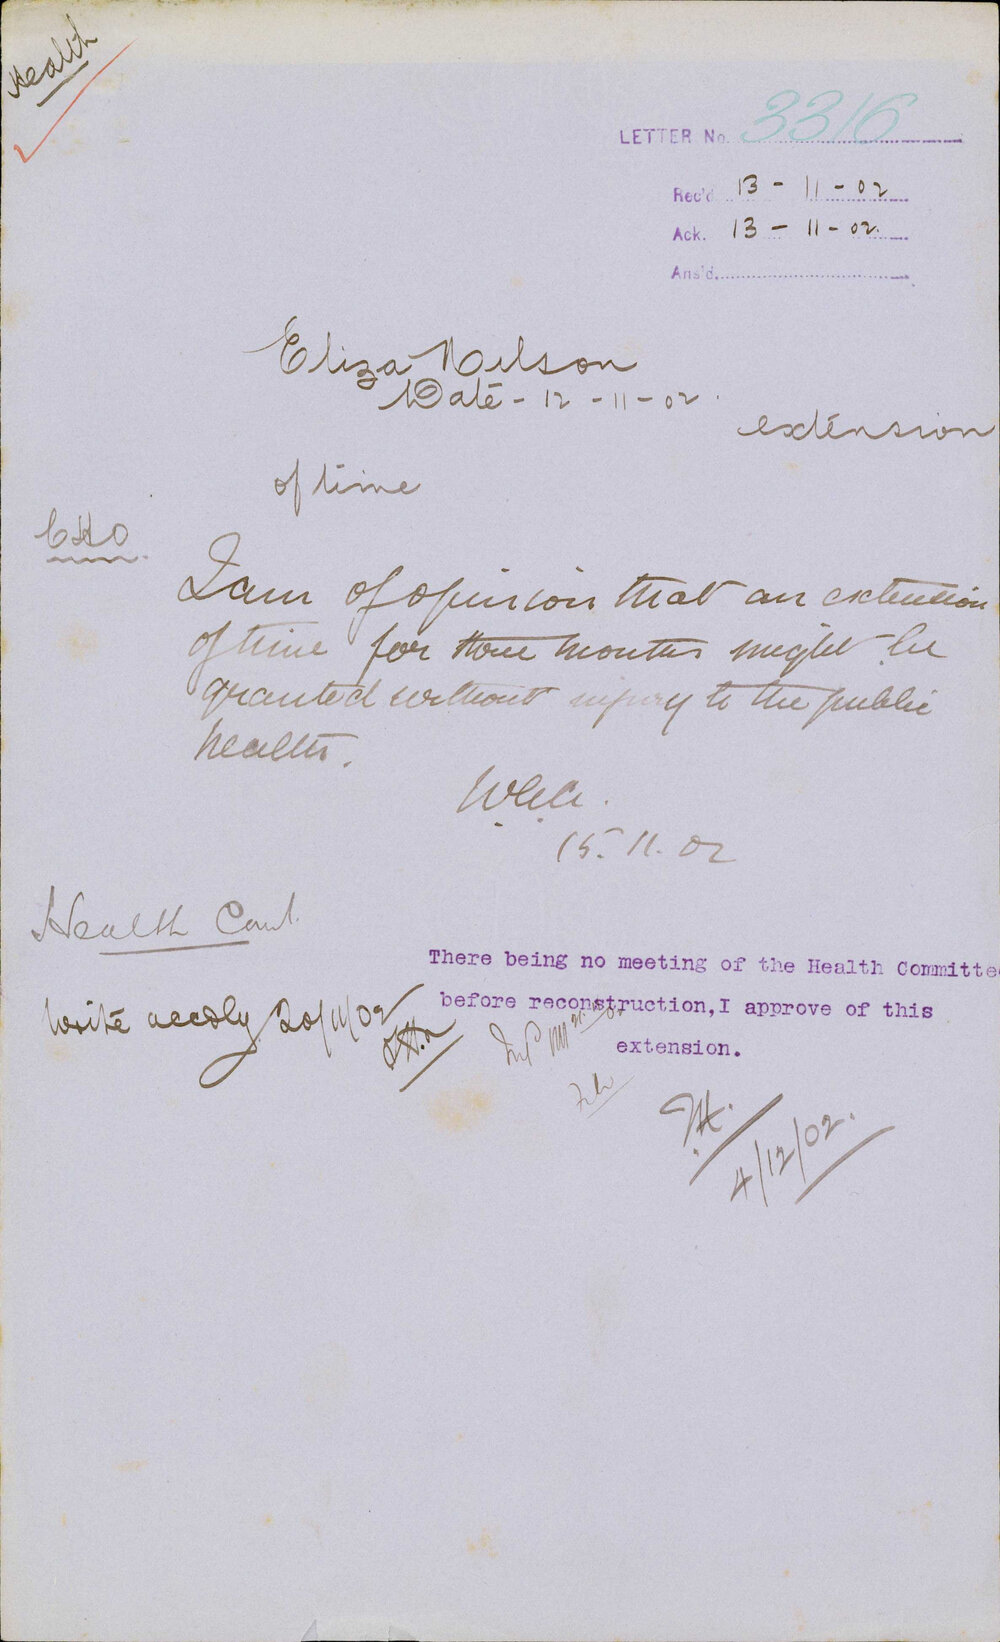 Health
LETTER No. 3316
Rec'd 13 - 11 - 02
Ack. 13 - 11 - 02.
Ans'd.
Eliza Nelson
Date - 12 - 11 - 02.
extension
of time
CHO
I am of opinion that an extension
of time for three months might be
granted without injury to the public
health.
15. 11. 02
Health Com.
There being no meeting of the Health Committe
before reconstruction, I approve of this
extension.
Write accdly 20/11/02
4/12/02.